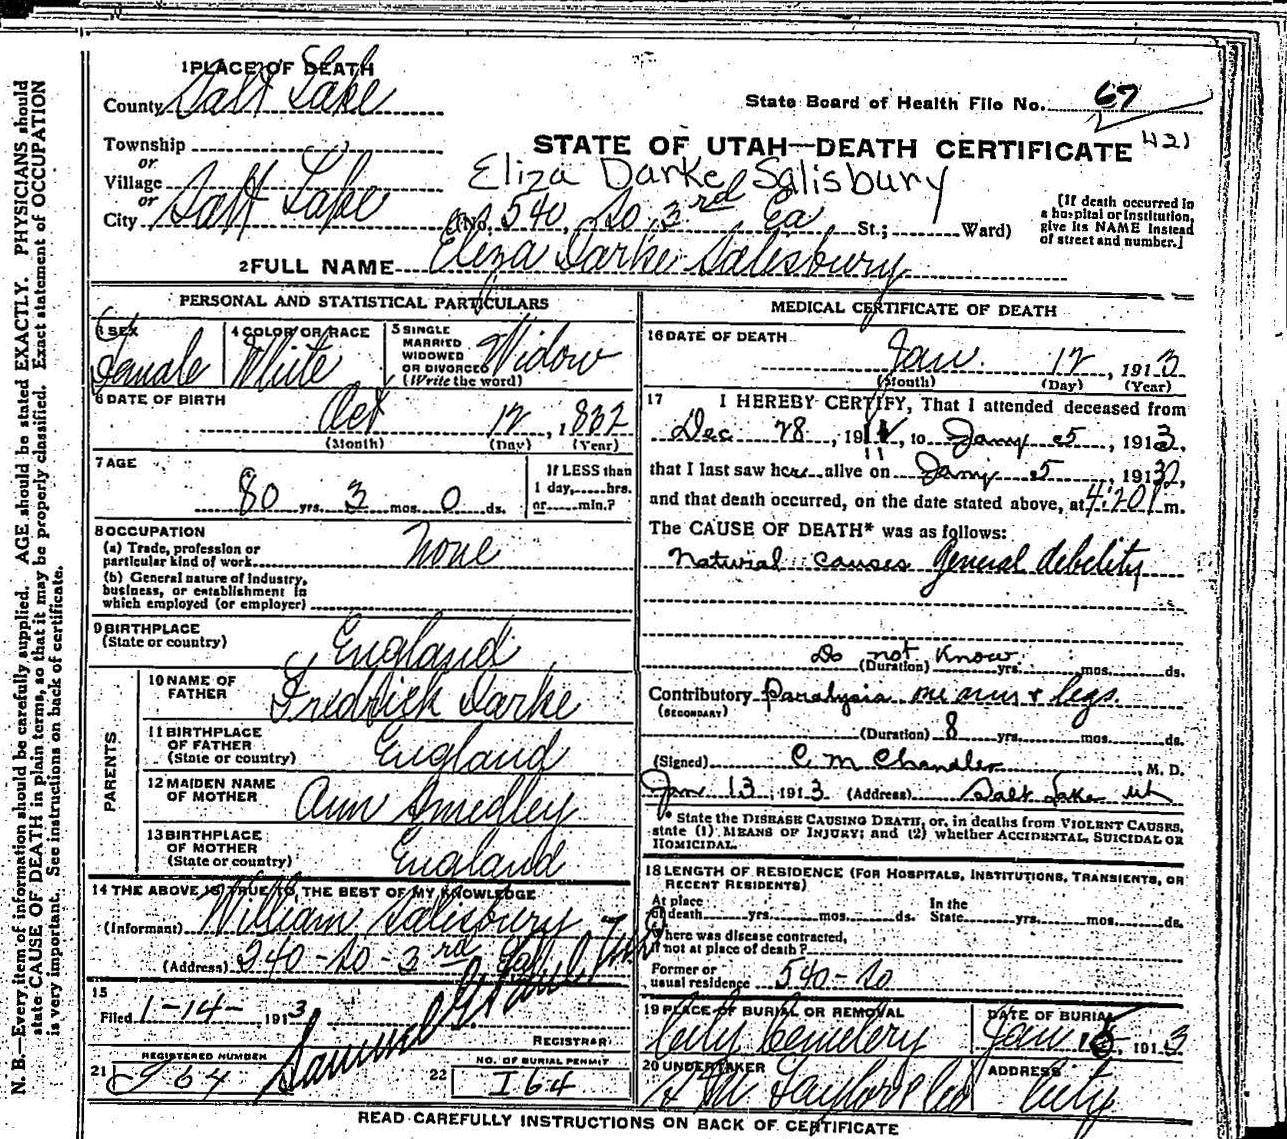 1 PLACE OF DEATH
County Salt Lake
State Board of Health File No. 67
421
Township
or
Village
or
City Salt Lake
STATE OF UTAH—DEATH CERTIFICATE
Eliza Darke Salisbury
(No. 540, So 3rd Ea St.; Ward)
[If death occurred in a hospital or institution, give its NAME instead of street and number.]
2 FULL NAME Eliza Darke Salesbury
PERSONAL AND STATISTICAL PARTICULARS
3 SEX Female
4 COLOR OR RACE White
5 SINGLE MARRIED WIDOWED OR DIVORCED (Write the word) Widow
6 DATE OF BIRTH
Oct 12, 1832
(Month) (Day) (Year)
7 AGE
80 yrs. 3 mos. 0 ds.
If LESS than 1 day, hrs. or min.?
8 OCCUPATION
(a) Trade, profession or particular kind of work None
(b) General nature of Industry, business, or establishment in which employed (or employer)
9 BIRTHPLACE (State or country) England
PARENTS
10 NAME OF FATHER Fredrick Darke
11 BIRTHPLACE OF FATHER (State or country) England
12 MAIDEN NAME OF MOTHER Ann Smedley
13 BIRTHPLACE OF MOTHER (State or country) England
14 THE ABOVE IS TRUE TO THE BEST OF MY KNOWLEDGE
(Informant) William Salesbury
(Address) 240-So-3rd
15
Filed 1-14- 1913
Samuel G. Paul
REGISTRAR
21 REGISTERED NUMBER
964
22 NO. OF BURIAL PERMIT
I64
MEDICAL CERTIFICATE OF DEATH
16 DATE OF DEATH
Jan. 12, 1913
(Month) (Day) (Year)
17 I HEREBY CERTIFY, That I attended deceased from
Dec 28, 191 , to Jany 5, 1913,
that I last saw her alive on Jany 5, 1913,
and that death occurred, on the date stated above, at 4:20 m.
The CAUSE OF DEATH* was as follows:
Natural causes general debelity
Do not Know
(Duration) yrs. mos. ds.
Contributory Paralysis one arm & legs.
(SECONDARY)
(Duration) 8 yrs. mos. ds.
(Signed) C. M Chandler, M. D.
Jan 13, 1913 (Address) Salt Lake Ut
* State the DISEASE CAUSING DEATH, or, in deaths from VIOLENT CAUSES,
state (1) MEANS OF INJURY; and (2) whether ACCIDENTAL, SUICIDAL OR
HOMICIDAL.
18 LENGTH OF RESIDENCE (FOR HOSPITALS, INSTITUTIONS, TRANSIENTS, OR
RECENT RESIDENTS)
At place of death yrs. mos. ds. In the State yrs. mos. ds.
Where was disease contracted,
If not at place of death?
Former or usual residence 540-So
19 PLACE OF BURIAL OR REMOVAL
City Cemetery
DATE OF BURIAL
Jan 15, 1913
20 UNDERTAKER
S M Taylor & Co
ADDRESS
City
READ CAREFULLY INSTRUCTIONS ON BACK OF CERTIFICATE
N. B.—Every item of information should be carefully supplied. AGE should be stated EXACTLY. PHYSICIANS should
state CAUSE OF DEATH in plain terms, so that it may be properly classified. Exact statement of OCCUPATION
is very important. See instructions on back of certificate.